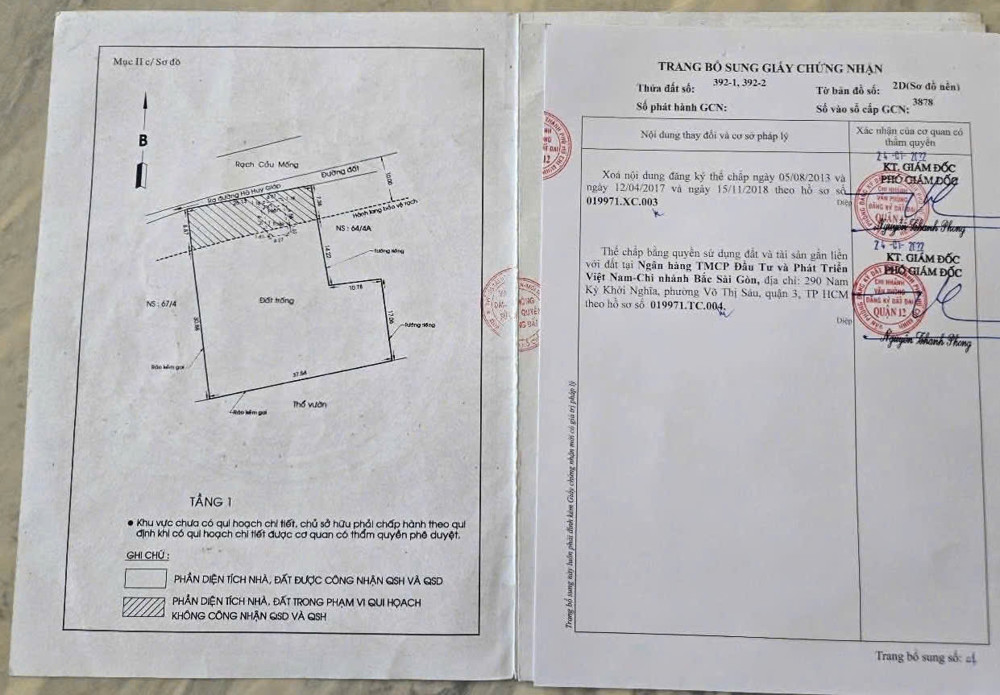 Mục II c/ Sơ đồ
B
Rạch Cầu Mống
Đường đất
Ra đường Hà Huy Giáp
10.00
Hành lang bảo vệ rạch
NS : 64/4A
Tường riêng
14.22
10.78
NS : 67/4
Đất trống
17.06
Tường riêng
Rào kẽm gai
37.54
Rào kẽm gai
Thổ vườn
TẦNG 1
• Khu vực chưa có qui hoạch chi tiết, chủ sở hữu phải chấp hành theo qui
định khi có qui hoạch chi tiết được cơ quan có thẩm quyền phê duyệt.
GHI CHÚ :
PHẦN DIỆN TÍCH NHÀ, ĐẤT ĐƯỢC CÔNG NHẬN QSH VÀ QSD
PHẦN DIỆN TÍCH NHÀ, ĐẤT TRONG PHẠM VI QUI HOẠCH
KHÔNG CÔNG NHẬN QSD VÀ QSH
TRANG BỔ SUNG GIẤY CHỨNG NHẬN
Thửa đất số: 392-1, 392-2 Tờ bản đồ số: 2D(Sơ đồ nền)
Số phát hành GCN: Số vào sổ cấp GCN: 3878
Nội dung thay đổi và cơ sở pháp lý
Xác nhận của cơ quan có
thẩm quyền
Xoá nội dung đăng ký thế chấp ngày 05/08/2013 và
ngày 12/04/2017 và ngày 15/11/2018 theo hồ sơ số
019971.XC.003
Diệp
KT. GIÁM ĐỐC
PHÓ GIÁM ĐỐC
CHI NHÁNH
VĂN PHÒNG
ĐĂNG KÝ ĐẤT ĐAI
QUẬN 12
Nguyễn Thanh Phong
Thế chấp bằng quyền sử dụng đất và tài sản gắn liền
với đất tại Ngân hàng TMCP Đầu Tư và Phát Triển
Việt Nam-Chi nhánh Bắc Sài Gòn, địa chỉ: 290 Nam
Kỳ Khởi Nghĩa, phường Võ Thị Sáu, quận 3, TP HCM
theo hồ sơ số 019971.TC.004
Diệp
KT. GIÁM ĐỐC
PHÓ GIÁM ĐỐC
CHI NHÁNH
VĂN PHÒNG
ĐĂNG KÝ ĐẤT ĐAI
QUẬN 12
Nguyễn Thanh Phong
Trang bổ sung này luôn phải đính kèm Giấy chứng nhận mới có giá trị pháp lý
Trang bổ sung số: